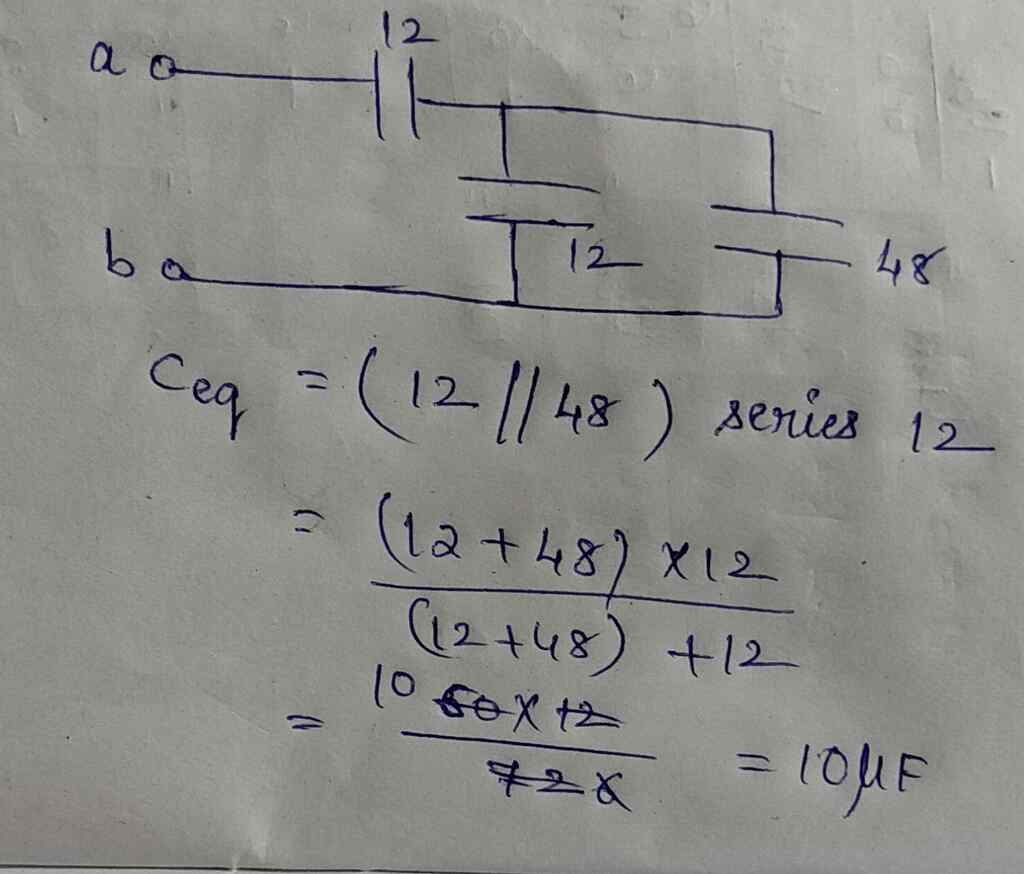 12
a
b
12
48
Ceq = (12 // 48) series 12
= (12 + 48) x 12
(12 + 48) + 12
= 10 60 x 12
72 6 = 10 μF